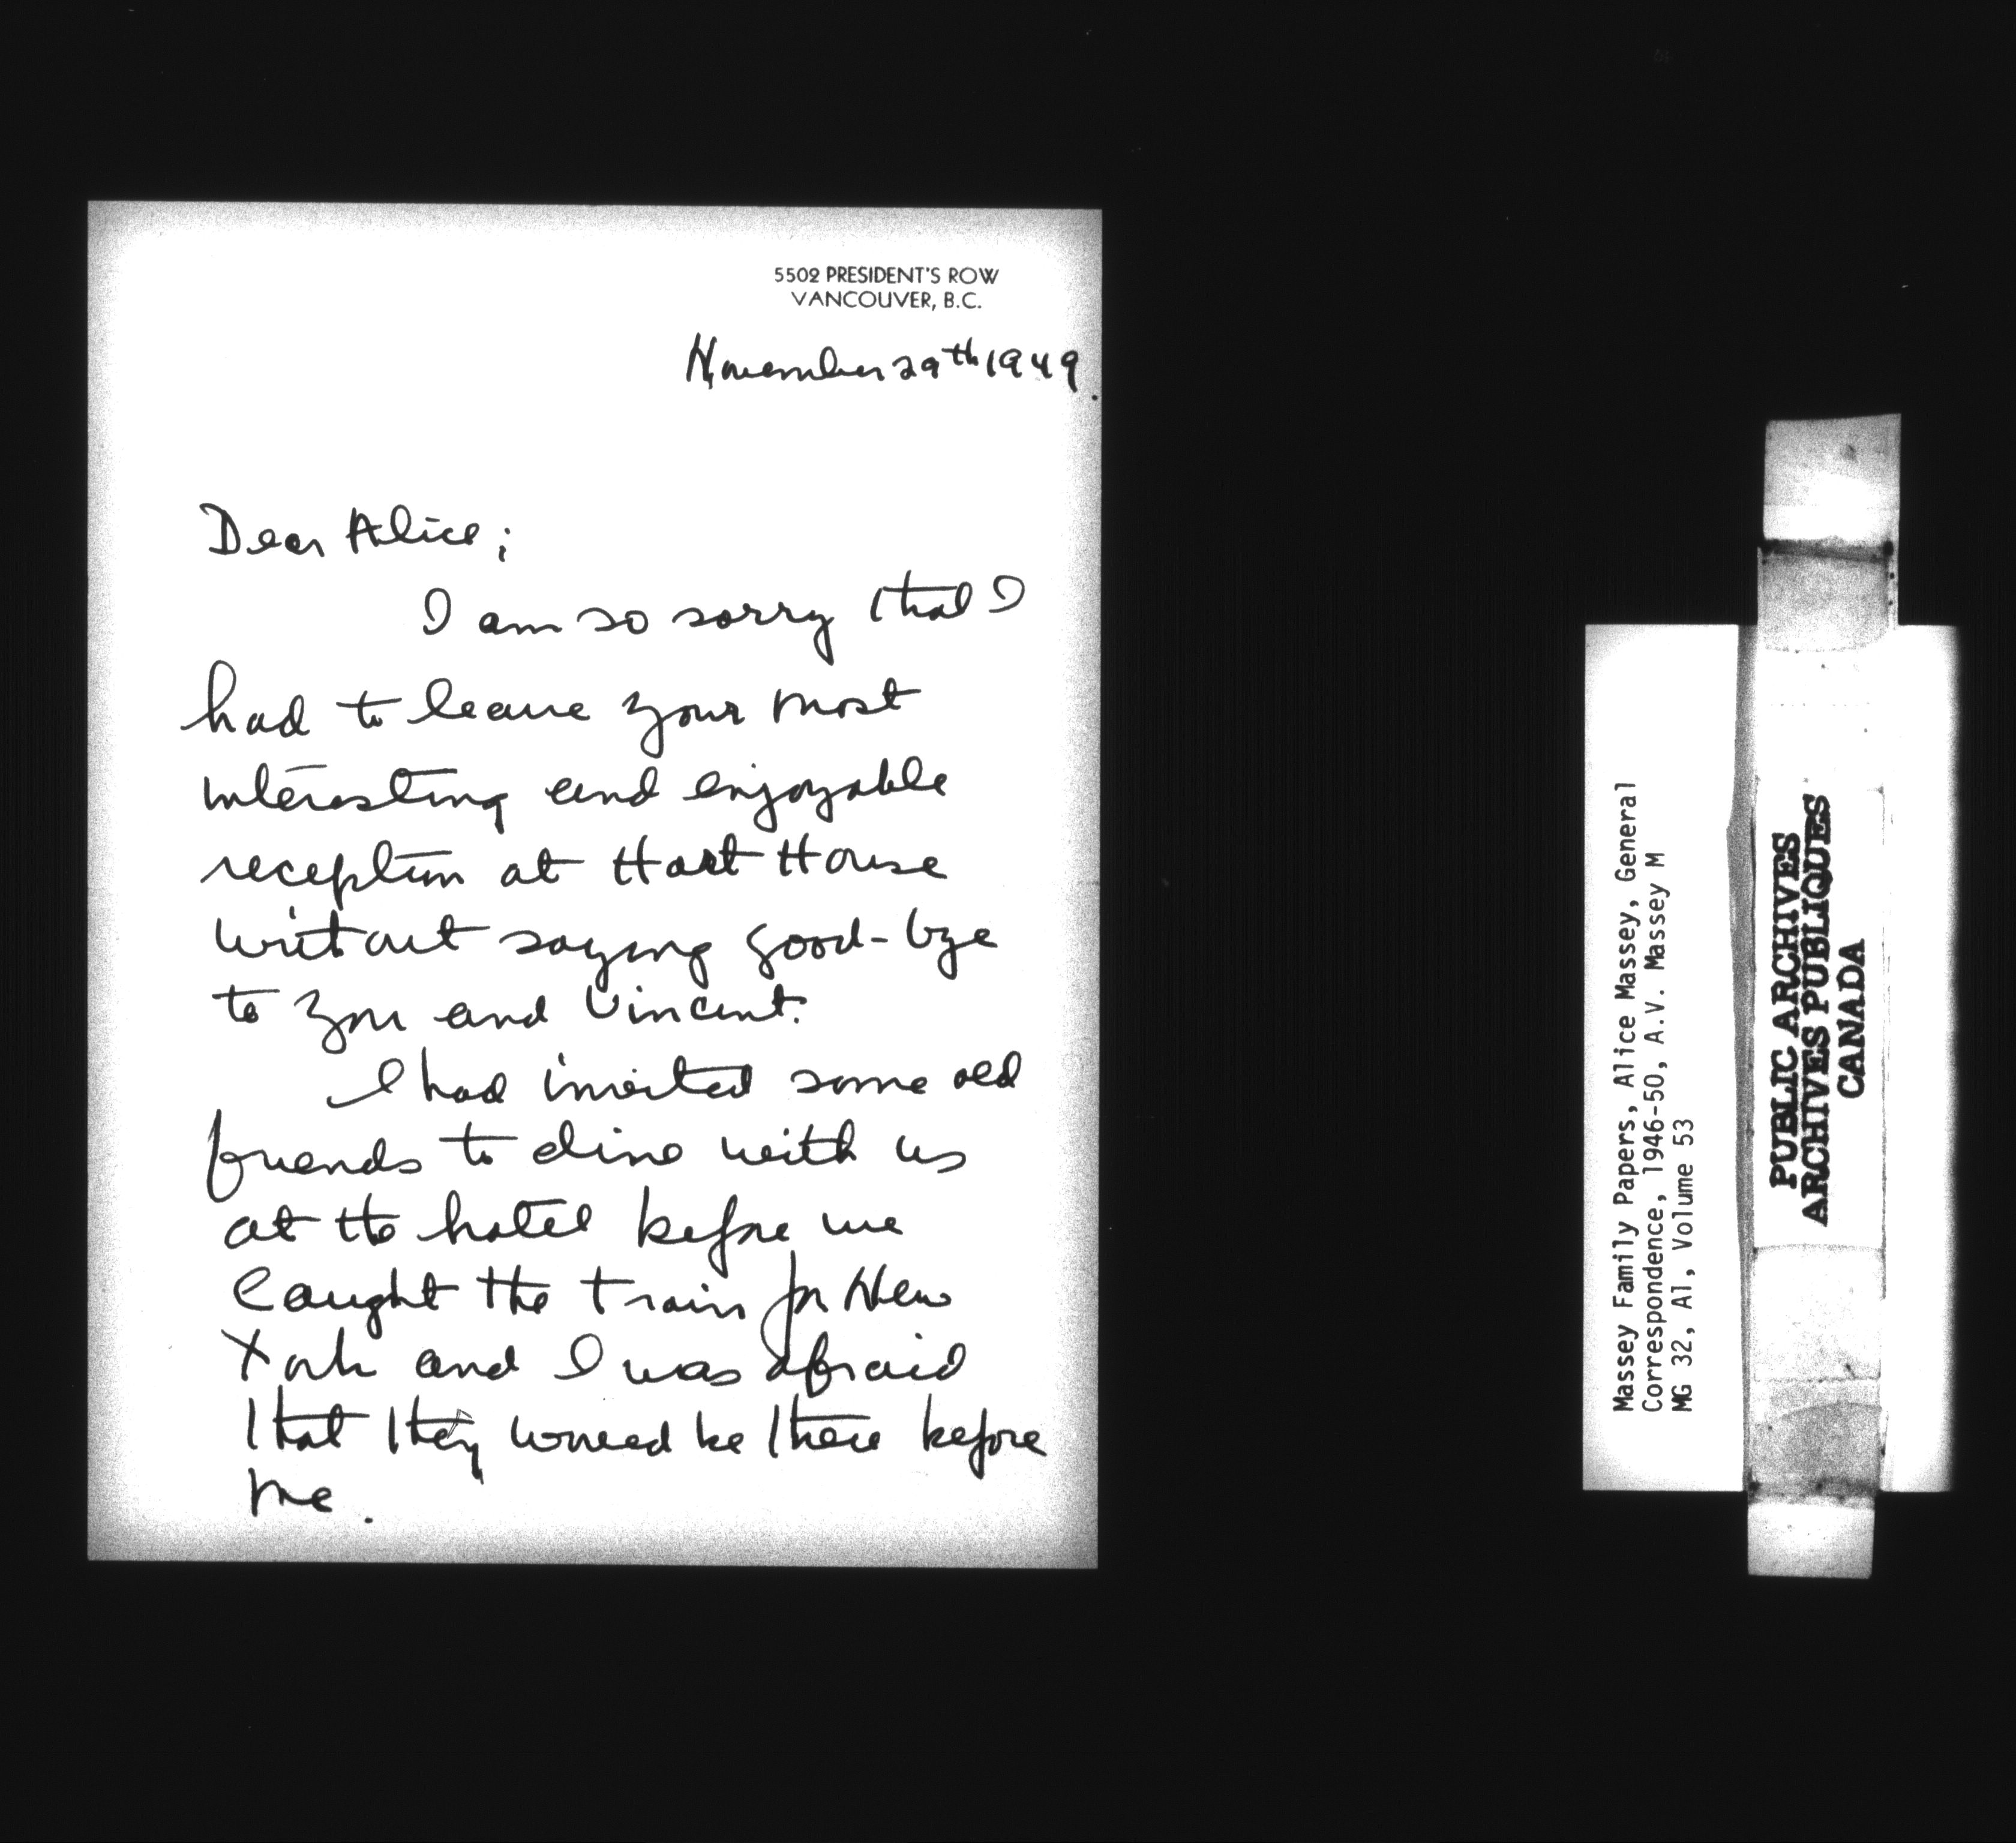 5502 PRESIDENT'S ROW
VANCOUVER, B.C.
November 29th 1949.
Dear Alice;
I am so sorry that I
had to leave your most
interesting and enjoyable
reception at Hart House
without saying good-bye
to you and Vincent.
I had invited some old
friends to dine with us
at the hotel before we
caught the train for New
York and I was afraid
that they would be there before
me.
Massey Family Papers, Alice Massey, General
Correspondence, 1946-50, A.V. Massey M
MG 32, A1, Volume 53
PUBLIC ARCHIVES
ARCHIVES PUBLIQUES
CANADA